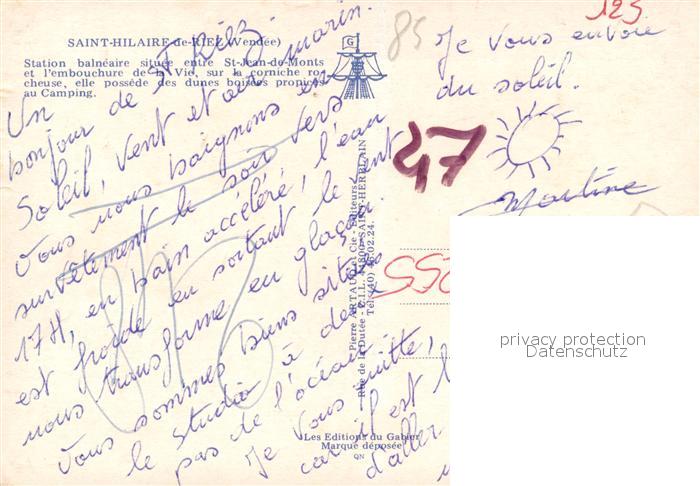 SAINT-HILAIRE-de-RIEZ (Vendée)
Station balnéaire située entre St-Jean-de-Monts
et l'embouchure de la Vie, sur la corniche ro-
cheuse, elle possède des dunes boisées propices
au Camping.
Un
bonjour de St Riez.
Soleil, vent et air marin.
Vous nous baignons en
survêtement le soir vers
17H, en bain accéléré, l'eau
est froide en sortant le vent
nous transforme en glaçon.
Vous sommes biens situés
le studio à de
pas de l'océan
Je vous quitte,
car il est l
d'aller
Je vous envoie
du soleil.
Martine
85
123
47
Pierre ARTAUD et Cie, Editeurs
Rue de la Dutée - Z.I.L. 44800 SAINT-HERBLAIN
Tél. (40) 46.02.24.
Les Editions du Gabier
Marque déposée
QN
G
privacy protection
Datenschutz